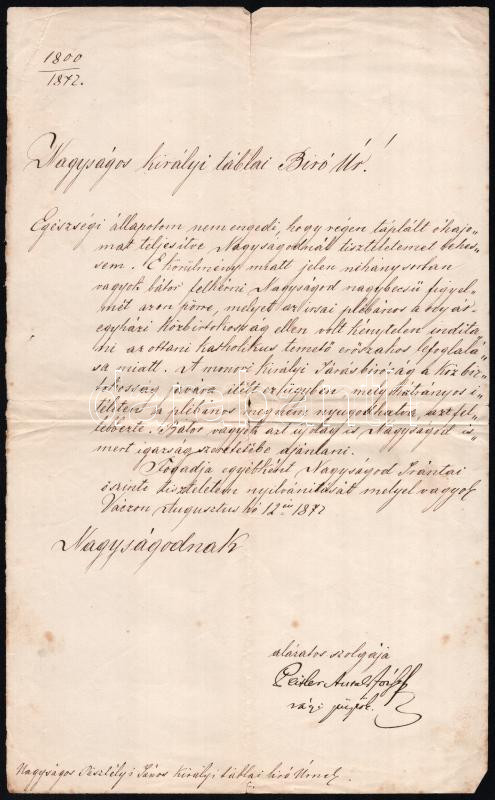 1800
1872.
Nagyságos királyi táblai Biró Úr!
Egésségi állapotom nem engedi, hogy régen táplált óhajo=
mat teljesitve Nagyságodnál tiszteletemet tehes=
sem. E körülmény miatt jelen néhány sorban
vagyok bátor felkérni Nagyságod nagybecsü figyel=
mét azon pörre, melyet az irsai plébános a
egyházi Közbirtokosság ellen volt kénytelen indita=
ni az ottani katholikus temető erőszakos lefoglalá=
sa miatt. A monori királyi Járásbiróság a Közbir=
tokosság javára itélt ez ügyben mely hátrányos i=
téleten a plébános meg nem nyugodhatva azt fel=
lebbezte. Bátor vagyok azt ily Nagyságod is=
mert igazság szeretetébe ajánlani.
Fogadja egyébiránt Nagyságod Irántai
őszinte tiszteletem nyilvánitását melyel vagyok
Váczon Augusztus hó 12én 1872
Nagyságodnak
alázatos szolgája
Peitler Antal József
váczi püspök.
Nagyságos János Királyi táblai biró Úrnak.